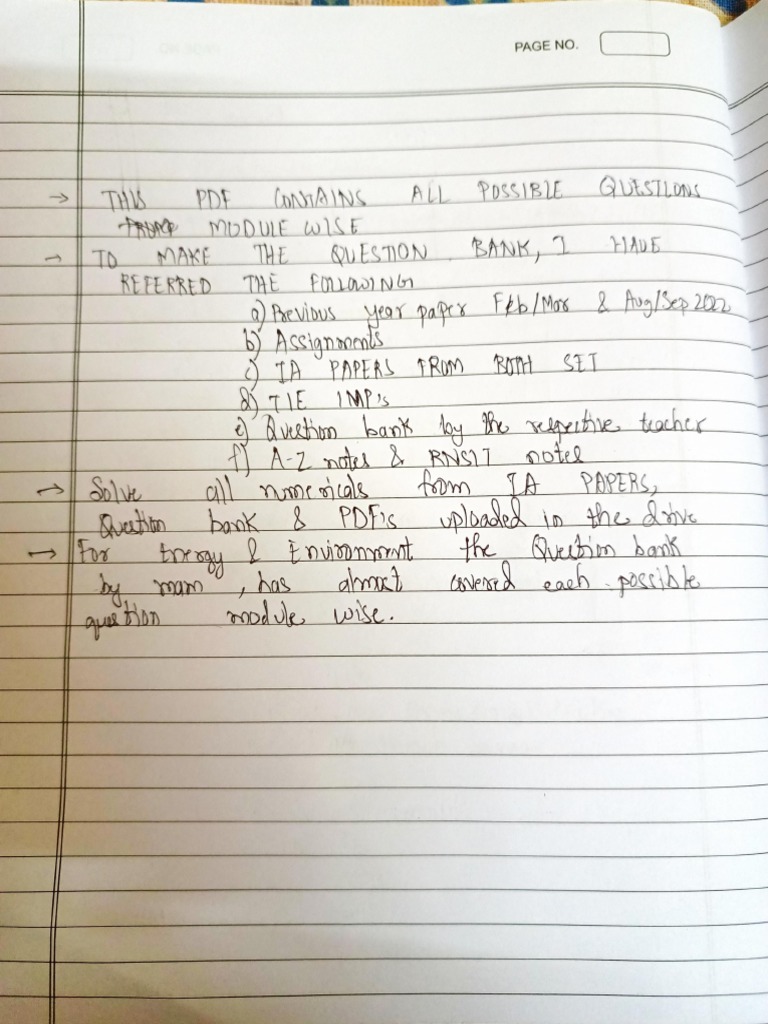 PAGE NO.
→ THIS PDF CONTAINS ALL POSSIBLE QUESTIONS
MODULE WISE
→ TO MAKE THE QUESTION BANK, I HAVE
REFERRED THE FOLLOWING
a) Previous year paper Feb/Mar & Aug/Sep 2022
b) Assignments
c) IA PAPERS FROM BOTH SET
d) TIE IMP's
e) Question bank by the respective teacher
f) A-Z notes & RNSIT notes
→ Solve all numericals from IA PAPERS,
Question bank & PDF's uploaded in the drive
→ For Energy & Environment the Question bank
by mam, has almost covered each possible
question module wise.